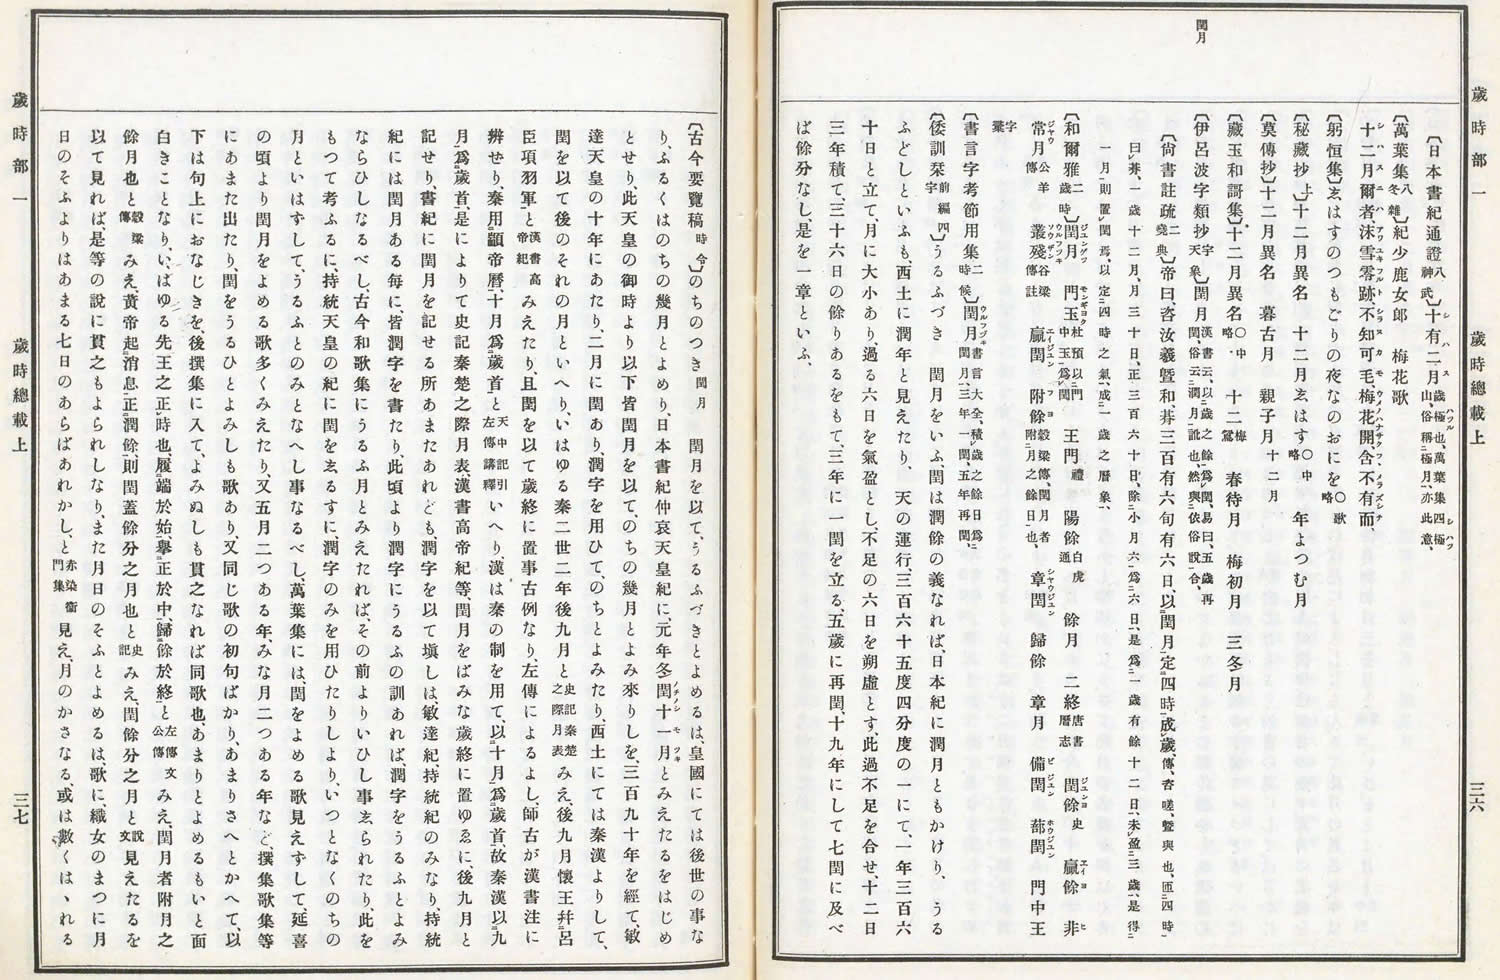 歲時部一 歲時總載上 三六
閏月
〔日本書紀通證八神武〕十有二月シハス歲極ハツル也、萬葉集四極シハツ山、俗稱二極月一、亦此意、
〔萬葉集八冬雜〕紀少鹿女郎 梅花歌
十二月爾者シハスニハ、沫雪零跡アワユキフルト、不知可毛シラスカモ、梅花開ウメノハナサク、含不有而フフメラズシテ、
〔躬恒集〕ゑはすのつもごりの夜なのおにを○歌略
〔秘藏抄上〕十二月異名 十二月ゑはす○中略 年よつむ月
〔莫傳抄〕十二月異名 暮古月 親子月十二月
〔藏玉和謌集〕十二月異名○中略 十二梅鶯 春待月 梅初月 三冬月
〔伊呂波字類抄宇天象〕閏月漢書云、以二歲之餘一爲レ閏、易曰、五歲再閏、俗云二潤月一訛也、然與二依俗說一合、
〔尚書註疏二堯典〕帝曰、咨汝羲曁和、朞三百有六旬有六日、以二閏月一定二四時一成レ歲、傳、咨嗟、曁與也、匝二四時一曰レ朞、一歲十二月、月三十日、正三百六十日、除二小月六一爲二六日一、是爲二一歲有餘十二日一、未レ盈二三歲一、是得二一月一、則置レ閏焉、以定二四時之氣一、成二一歲之曆象一、
〔和爾雅二歲時〕閏月ジユンゲツウルフヅキ 門玉モンギヨク杜預以二門中玉一爲レ閏 王門禮 陽餘白虎通 餘月 二終唐書曆志 閏餘ジユンヨ史 贏餘エイヨ非ヒ
常月ジヤウ公羊傳 叢殘ソウザン谷梁傳註 贏閏エイジユン 附餘フヨ穀梁傳、閏月者附二月之餘日一也、 章閏シヤウジユン 歸餘 章月 備閏ビジユン 蔀閏ホウジユン 門中王
字彙
〔書言字考節用集二時候〕閏月ウルフヅキ書言大全、積レ歲之餘日爲二閏月一、三年一閏、五年再閏、
〔倭訓栞前編四宇〕うるふづき 閏月をいふ、閏は潤餘の義なれば、日本紀に潤月ともかけり、うるふどしといふも、西土に潤年と見えたり、 天の運行、三百六十五度四分度の一にて、一年三百六十日と立て、月に大小あり、過る六日を氣盈とし、不足の六日を朔虛とす、此過不足を合せ、十二日三年積て、三十六日の餘りあるをもて、三年に一閏を立る、五歲に再閏、十九年にして七閏に及べば餘分なし、是を一章といふ、
〔古今要覽稿時令〕のちのつき閏月 閏月を以て、うるふづきとよめるは、皇國にては後世の事なり、ふるくはのちの幾月とよめり、日本書紀仲哀天皇紀に、元年冬閏ノチノ十一月シモツキとみえたるをはじめとせり、此天皇の御時より以下皆閏月を以て、のちの幾月とよみ來りしを、三百九十年を經て、敏達天皇の十年にあたり、二月に閏あり、潤字を用ひて、のちとよみたり、西土にては秦漢よりして、閏を以て後のそれの月といへり、いはゆる秦二世二年後九月と史記秦楚之際月表みえ、後九月懷王幷呂臣項羽軍と漢書高帝紀みえたり、且閏を以て歲終に置事古例なり、左傳によるよし、師古が漢書注に辨せり、秦用二顓帝曆一、十月爲二歲首一と天中記引左傳講釋いへり漢は秦の制を用て、以二十月一爲二歲首一、故秦漢以二九月一爲二歲首一、是によりて史記秦楚之際月表、漢書高帝紀等、閏月をばみな歲終に置ゆゑに、後九月と記せり、書紀に閏月を記せる所あまたあれども、潤字を以て塡しは、敏達紀、持統紀のみなり、持統紀には閏月ある每に、皆潤字を書たり、此頃より潤字にうるふの訓あれば、潤字をうるふとよみならひしなるべし、古今和歌集にうるふ月とみえたれば、その前よりいひし事ゑられたり、此をもつて考ふるに、持統天皇の紀に閏をゑるすに、潤字のみを用ひたりしより、いつとなくのちの月といはずして、うるふとのみとなへし事なるべし、萬葉集には、閏をよめる歌見えずして、延喜の頃より閏月をよめる歌多くみえたり、又五月二つある年、みな月二つある年など、撰集歌集等にあまた出たり、閏をうるひとよみしも歌あり、又同じ歌の初句ばかり、あまりさへとかへて、以下は句上におなじきを、後撰集に入て、よみぬしも貫之なれば同歌也、あまりとよめるもいと面白きことなり、いはゆる先王之正レ時也、履二端於始一、擧二正於中一、歸二餘於終一と左傳文公傳みえ、閏月者附月之餘月也と穀梁傳みえ、黃帝起二消息一正二潤餘一、則閏蓋餘分之月也と史記みえ、閏餘分之月と說文見えたるを以て見れば、是等の說に貫之もよられしなり、また月日のそふとよめるは、歌に、織女のまつに月日のそふよりはあまる七日のあらばあれかし、と赤染衞門集見え、月のかさなる、或は數くはゝれる
歲時部一 歲時總載上 三七